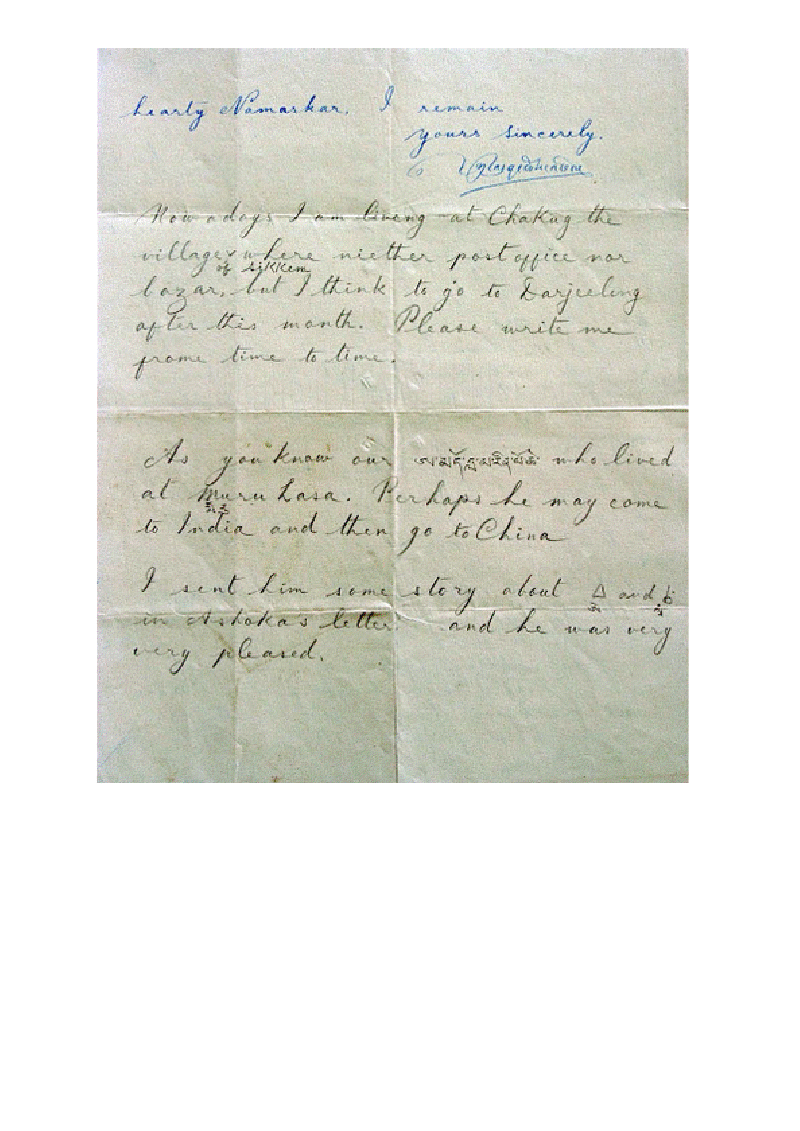 hearty Namaskar. I remain
yours sincerely.
Now adays I am living at Chakug the
village where niether postoffice nor
of sikkem
bazar, but I think to go to Darjeeling
after this month. Please write me
frome time to time.
As you know our ཨ་མདོ་བླ་མ་རིན་པོ་ཆེ་ who lived
at Muru Lasa. Perhaps he may come
to India and then go to China
I sent him some story about and
in Ashoka's letter and he was very
very pleased.